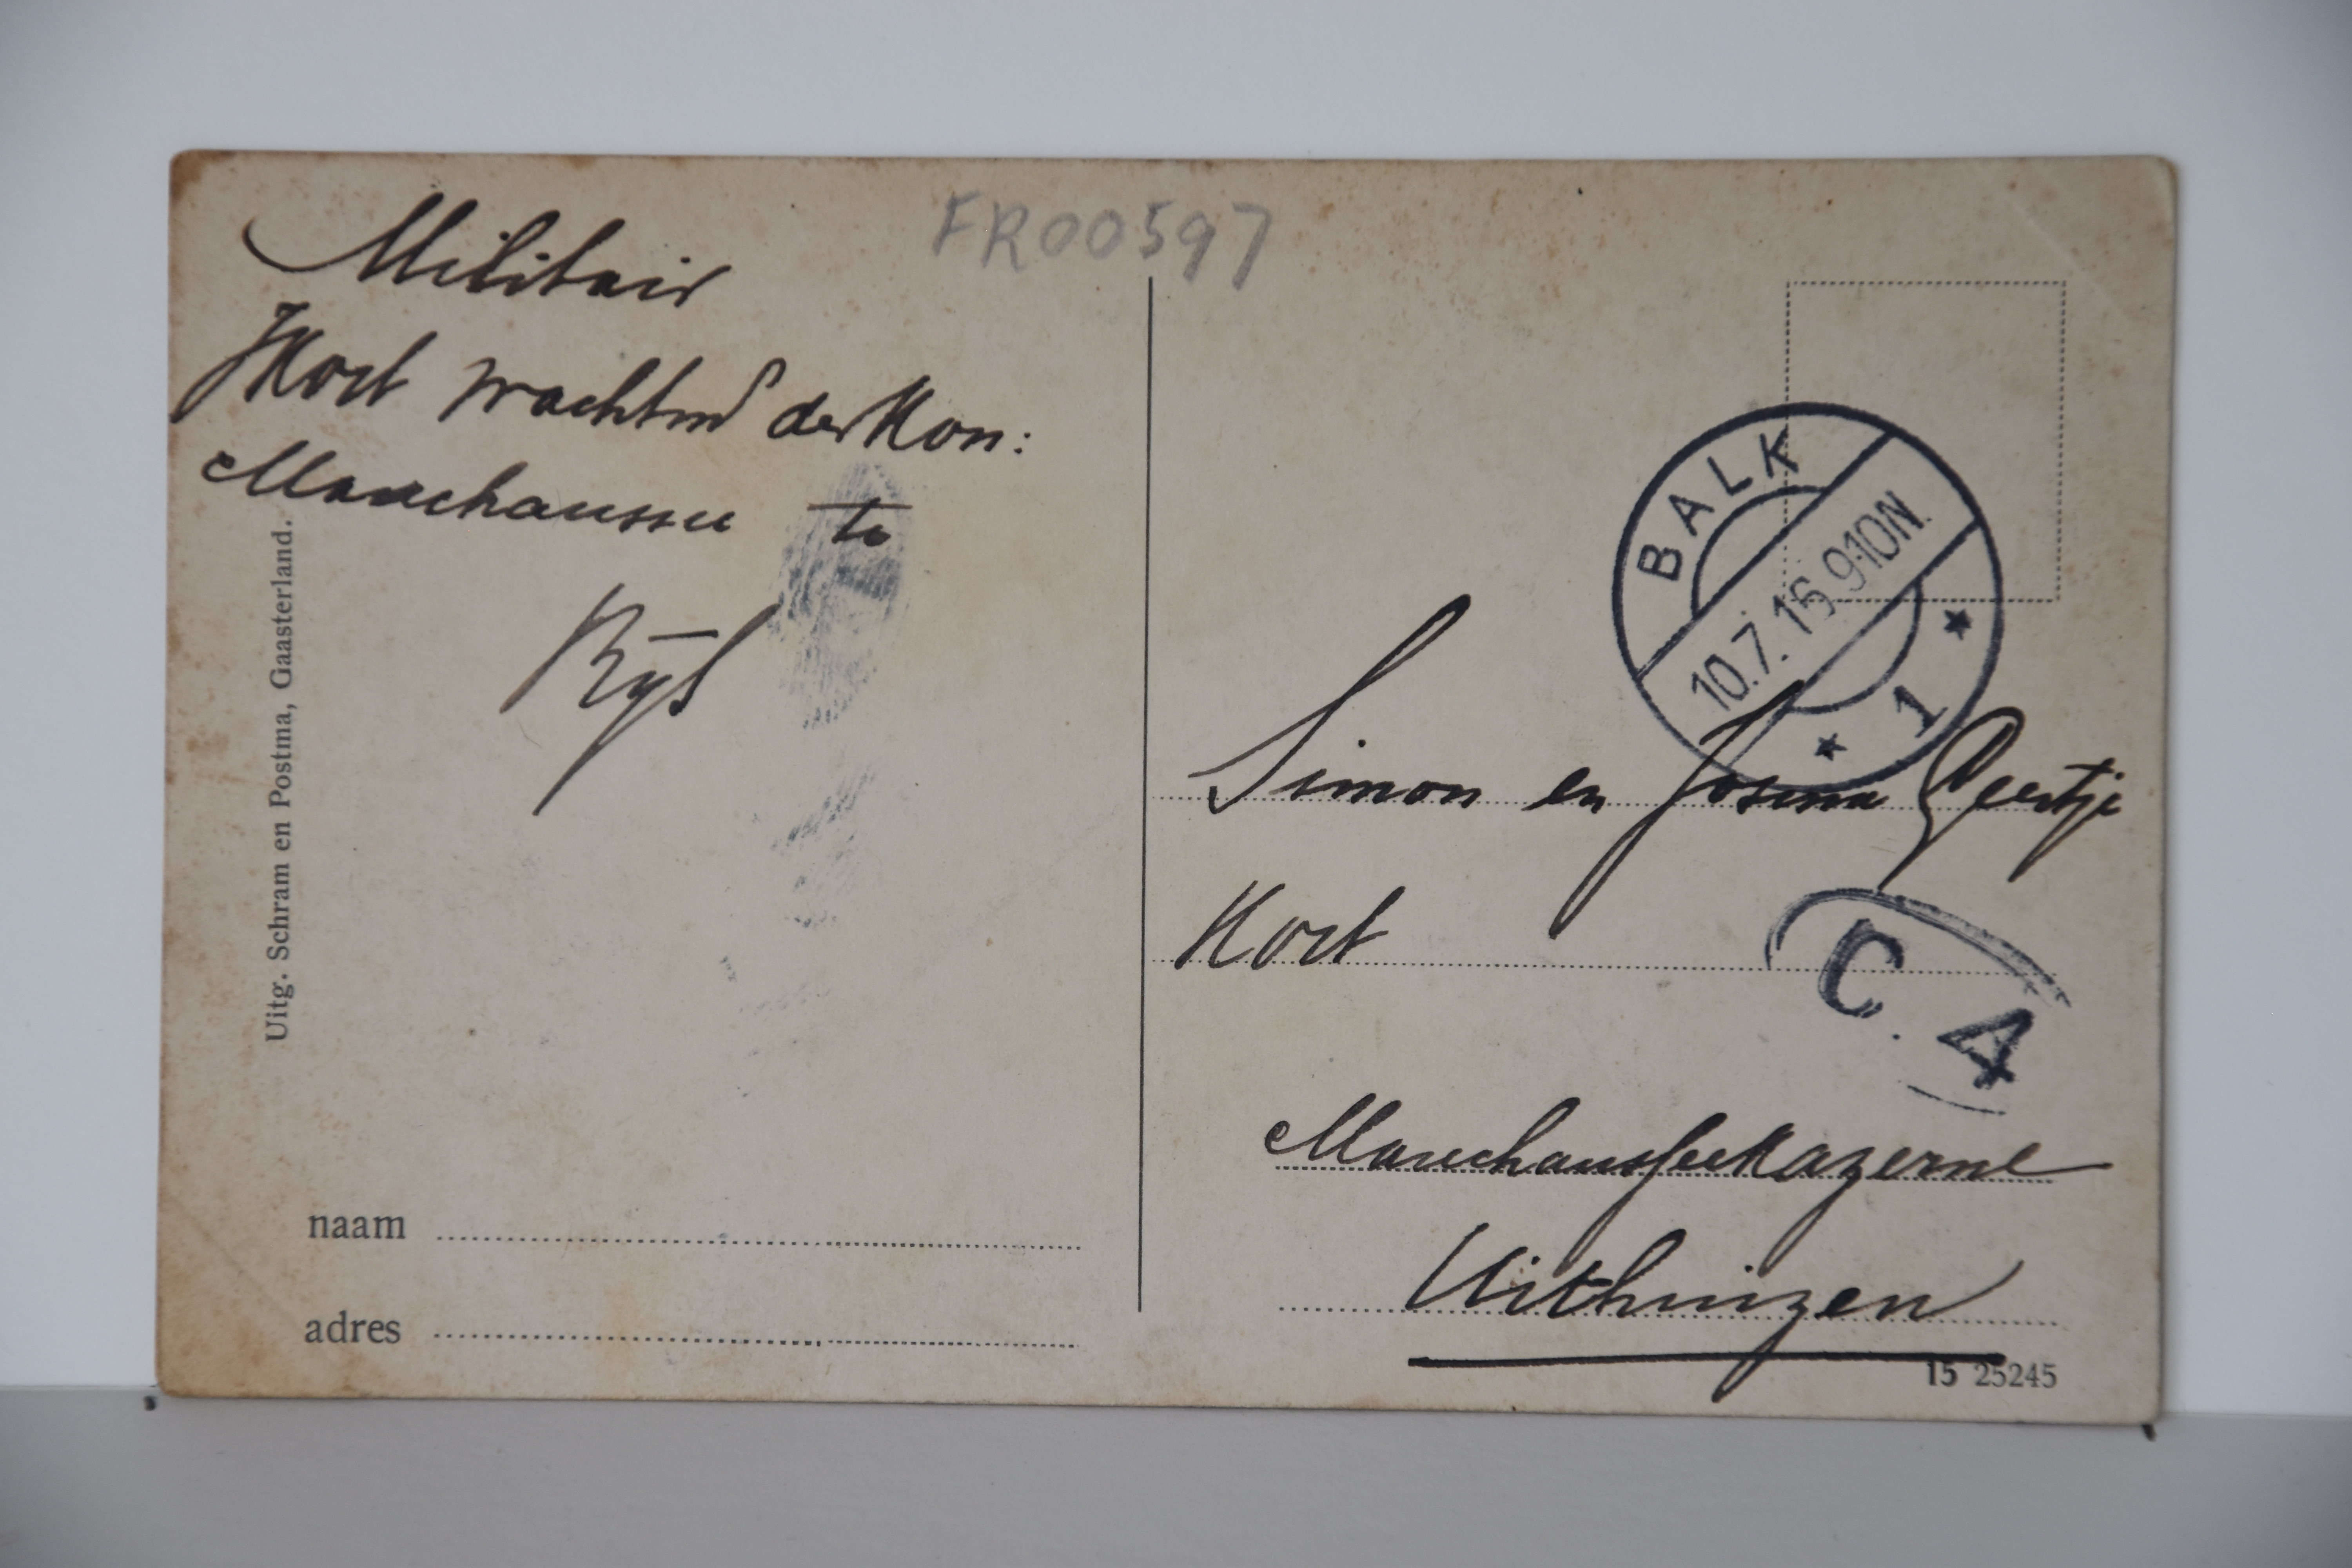 FR00597
Militair
JKort wachtmr der Kon:
Marechaussee te
Rijs
Uitg. Schram en Postma, Gaasterland.
naam
adres
BALK
10.7.16 9-10N.
1
Simon en Josina Geertje
Kort
C. A
Marechausseekazerne
Uithuizen
15 25245